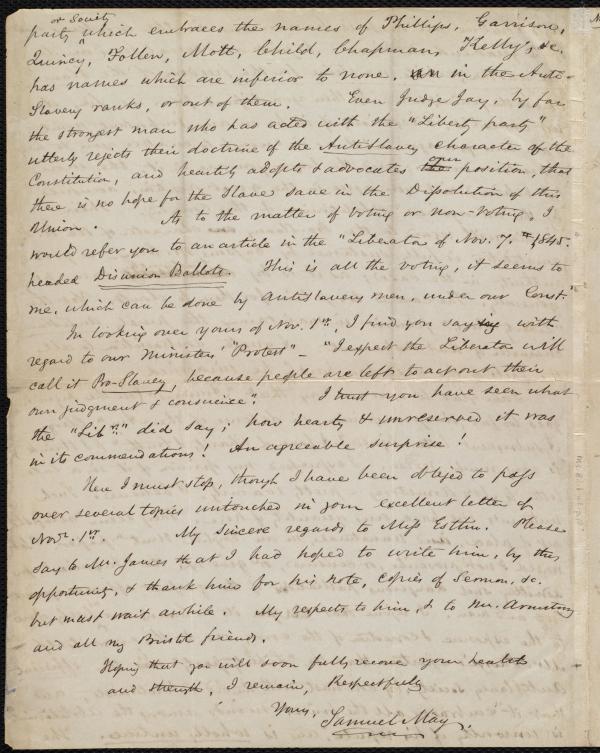 or Society
party which embraces the names of Phillips, Garrison,
Quincy, Follen, Mott, Child, Chapman, Kelly, &c.
has names which are inferior to none, in the Anti-
Slavery ranks, or out of them. Even Judge Jay, by far
the strongest man who has acted with the "Liberty party"
utterly rejects their doctrine of the AntiSlavery character of the
Constitution, and heartily adopts & advocates the our position, that
there is no hope for the Slave save in the Dissolution of this
Union. As to the matter of Voting or non-Voting, I
would refer you to an article in the "Liberator of Nov. 7.th 1845.
headed Disunion Ballots. This is all the voting, it seems to
me, which can be done by Antislavery men, under our Const."
In looking over yours of Nov. 1st, I find you say with
regard to our Ministers' "Protest" — "I expect the Liberator will
call it Pro-Slavery, because people are left to act out their
own judgment & conscience". I trust you have seen what
the "Libr." did say; how hearty & unreserved it was
in its commendations! An agreeable surprise!
Here I must stop, though I have been obliged to pass
over several topics untouched in your excellent letter of
Novr. 1st. My sincere regards to Miss Estlin. Please
say to Mr. James that I had hoped to write him, by this
opportunity, & thank him for his note, copies of Sermon, &c.
but must wait awhile. My respects to him, & to Mr. Armstrong
and all my Bristol friends.
Hoping that you will soon fully recover your health
and strength, I remain, Respectfully
Yours, Samuel May,